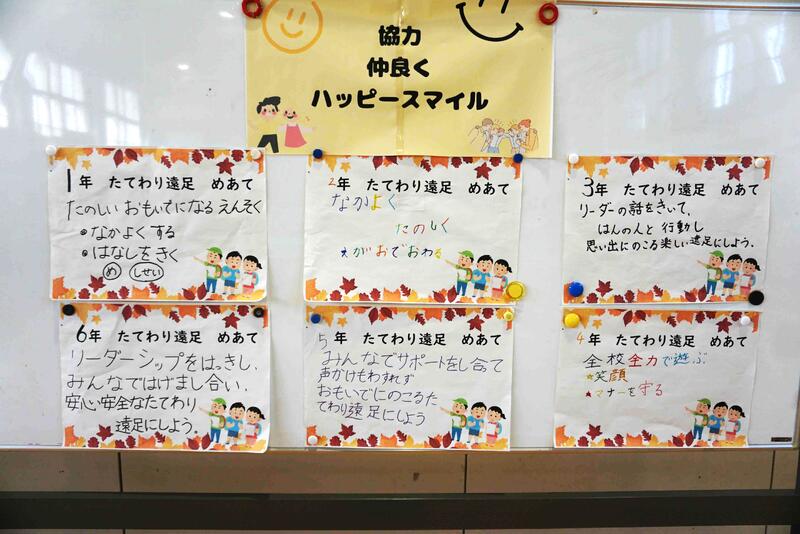 協力
仲良く
ハッピースマイル
1年 たてわり遠足 めあて
たのしい おもいでになる えんそく
・なかよくする
・はなしをきく
め しせい
2年 たてわり遠足 めあて
なかよく
たのしく
えがおでおわる
3年 たてわり遠足 めあて
リーダーの話をきいて、
はんの人と行動し
思い出にのこる楽しい遠足にしよう。
6年 たてわり遠足 めあて
リーダーシップをはっきし、
みんなではげまし合い、
安心安全なたてわり
遠足にしよう。
5年 たてわり遠足 めあて
みんなでサポートをし合て
声かけもわすれず
おもいでにのこるた
てわり遠足にしよう
4年 たてわり遠足 めあて
全校全力で遊ぶ
★笑顔
★マナーを守る